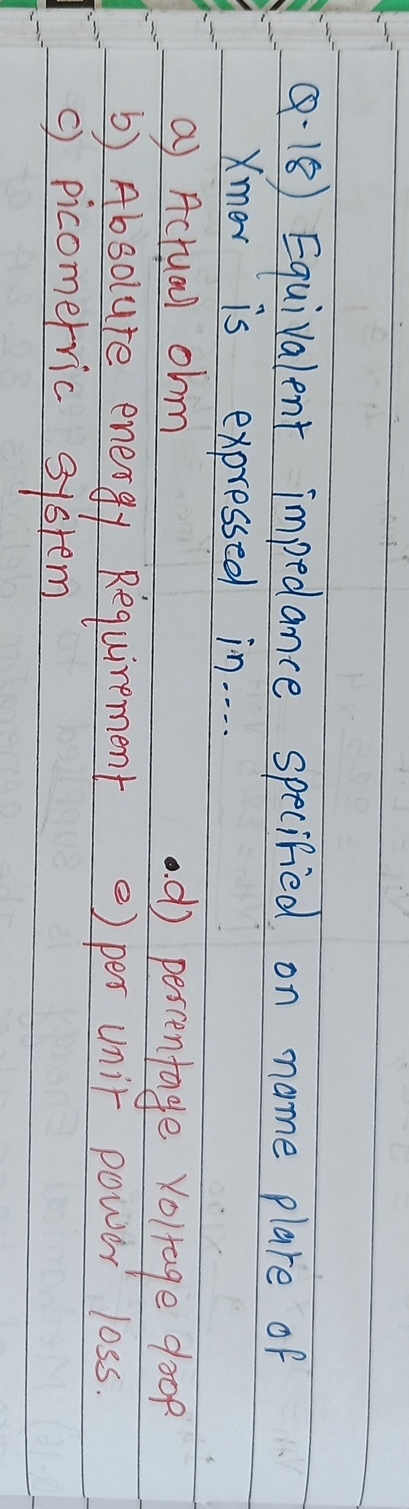 Q.18) Equivalent impedance specified on name plate of
Xmer is expressed in....
a) Actual ohm .d) percentage voltage drop
b) Absolute energy Requirement e) per unit power loss.
c) picometric system